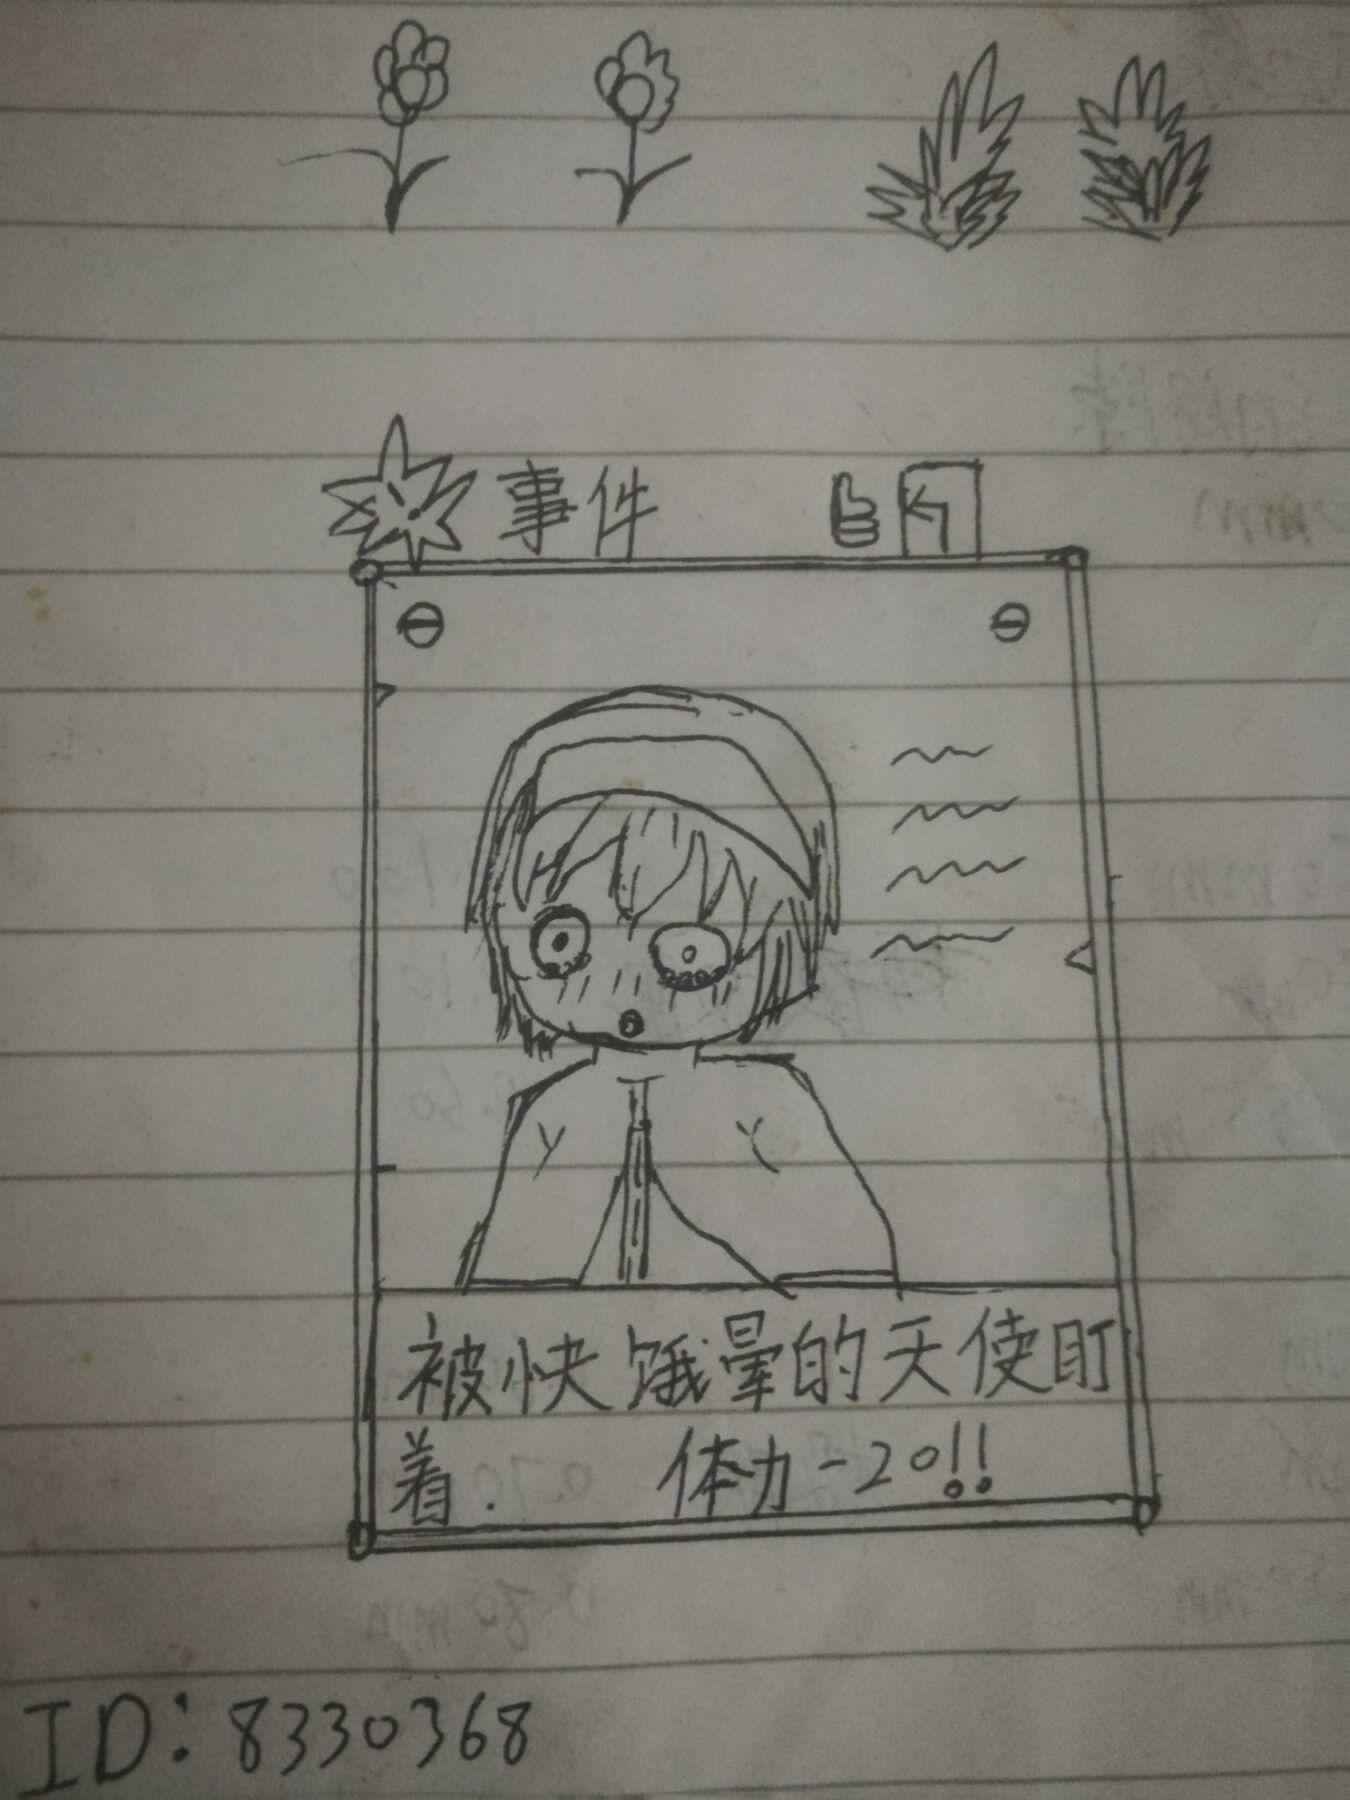 事件
被快饿晕的天使盯
着. 体力-20!!
ID:8330368